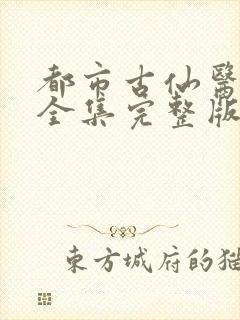 都市古仙醫
全集完整版
東方城府的猫